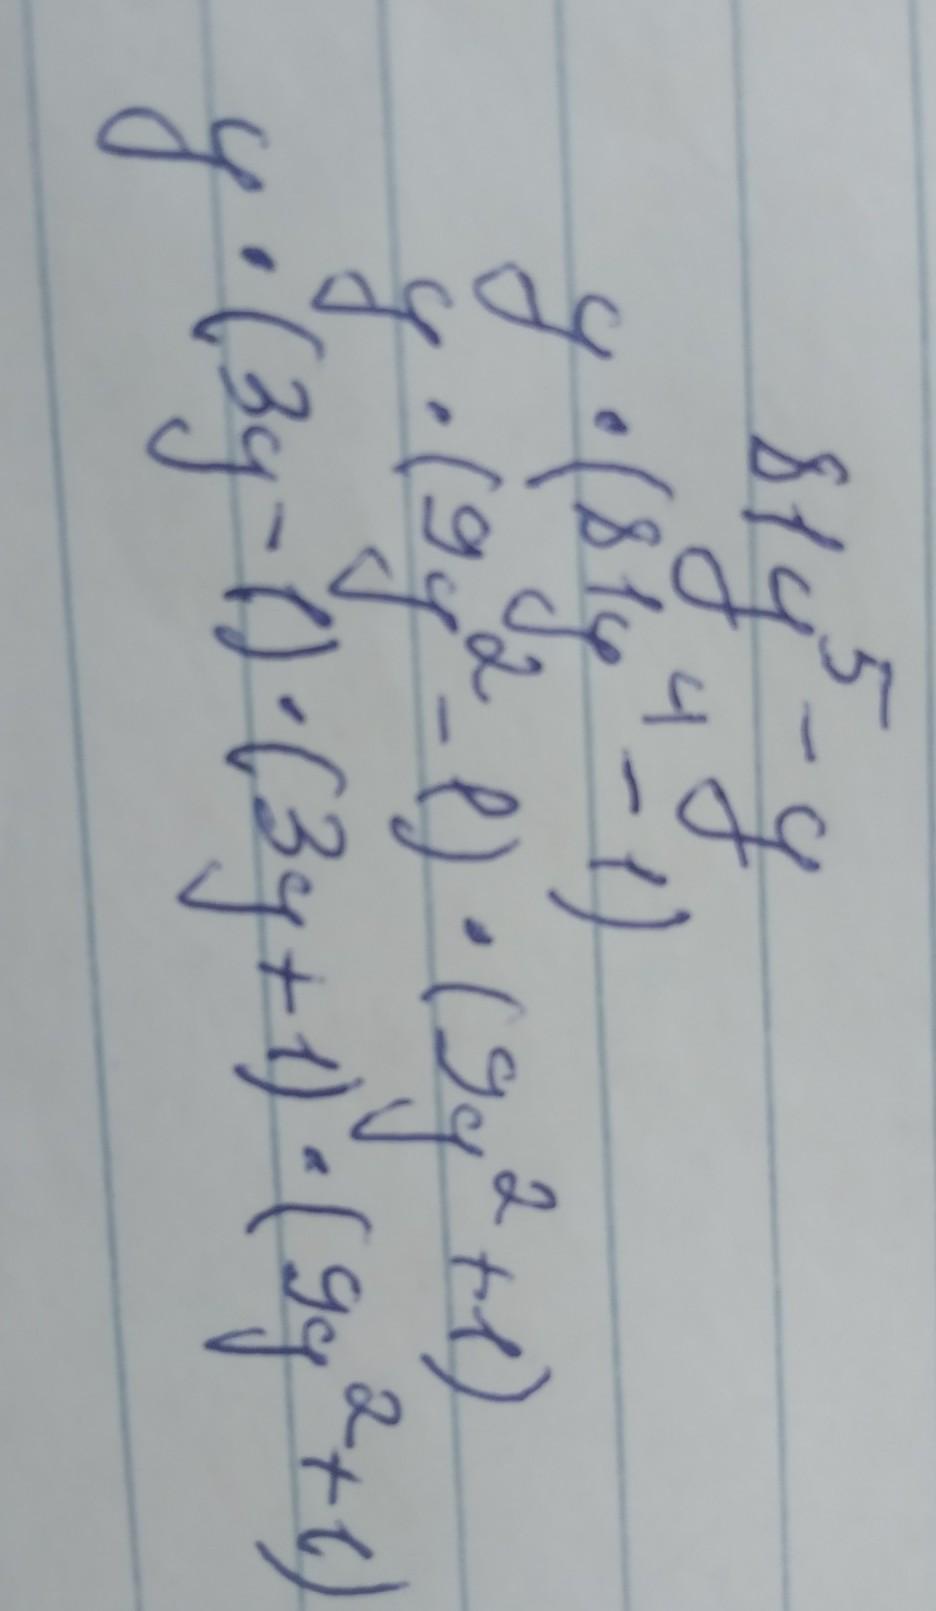 81y⁵ - y
y · (81y⁴ - 1)
y · (9y² - 1) · (9y² + 1)
y · (3y - 1) · (3y + 1) · (9y² + 1)